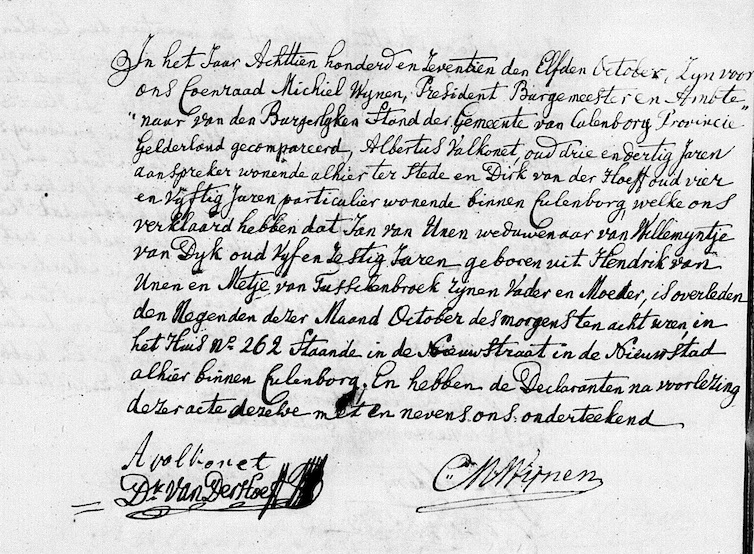 In het Jaar Achttien honderd en Zeventien den Elfden October, Zyn voor
ons Coenraad Michiel Wynen, President Burgemeester en Ambte„
„naar van den Burgerlyken Stand der Gemeente van Culenborg Provincie
Gelderland gecompareerd, Albertus Valkonet, oud drie en dertig Jaren
aanspreker wonende alhier ter Stede en Dirk van der Hoeff oud vier
en Vyftig Jaren particulier wonende binnen Culenborg, welke ons
verklaard hebben dat Jan van Unen weduwenaar van Willemyntje
van Dyk oud Vyf en Zestig Jaren geboren uit Hendrik van
Unen en Metje van Tussckenbroek Zynen Vader en Moeder, is overleden
den Negenden dezer Maand October des morgens ten acht uren in
het Huis No. 262 Staande in de Nieuwstraat in de Nieuwstad
alhier binnen Culenborg, En hebben de Declaranten na voorlezing
dezer acte dezelve met en nevens ons onderteekend
A valkonet
Dk Van Der Hoeff
CM Wijnen